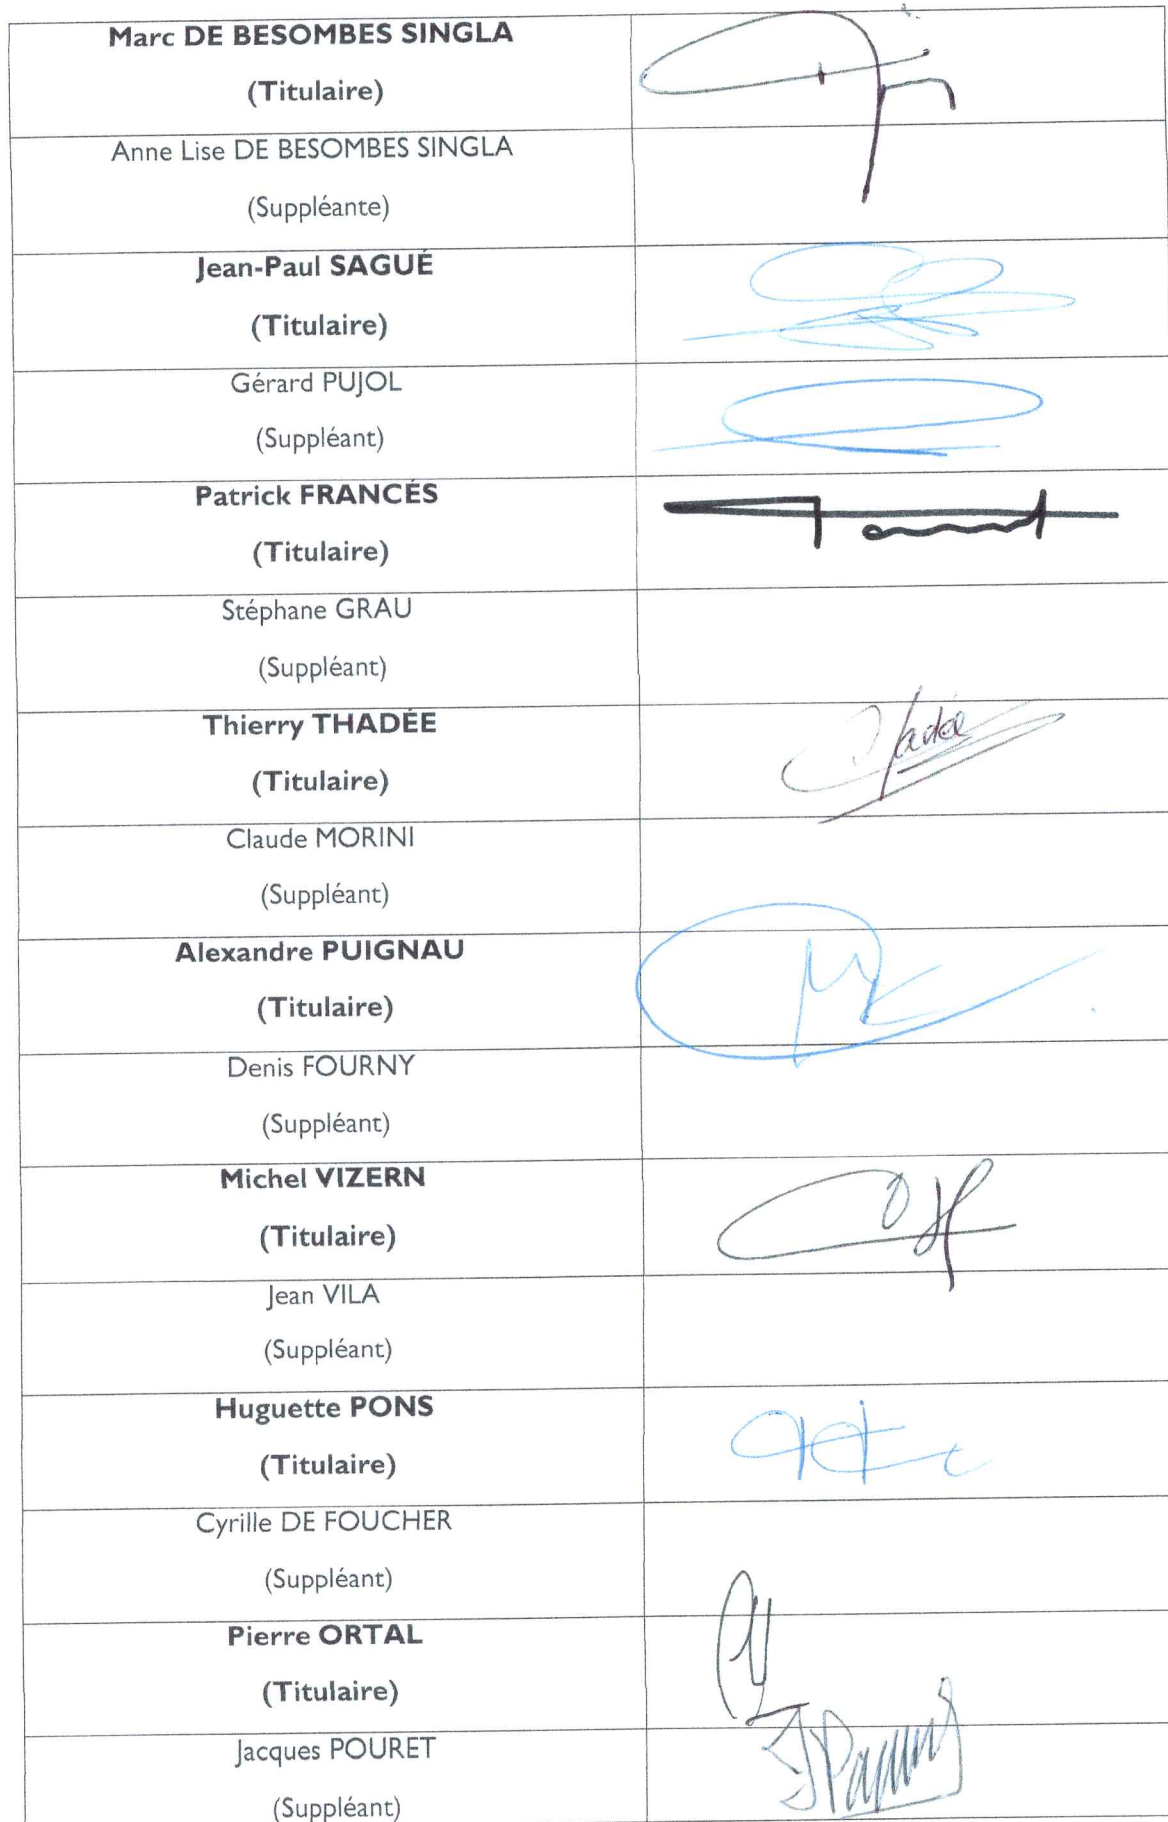 Marc DE BESOMBES SINGLA
(Titulaire)
Anne Lise DE BESOMBES SINGLA
(Suppléante)
Jean-Paul SAGUÉ
(Titulaire)
Gérard PUJOL
(Suppléant)
Patrick FRANCÉS
(Titulaire)
Stéphane GRAU
(Suppléant)
Thierry THADÉE
(Titulaire)
Claude MORINI
(Suppléant)
Alexandre PUIGNAU
(Titulaire)
Denis FOURNY
(Suppléant)
Michel VIZERN
(Titulaire)
Jean VILA
(Suppléant)
Huguette PONS
(Titulaire)
Cyrille DE FOUCHER
(Suppléant)
Pierre ORTAL
(Titulaire)
Jacques POURET
(Suppléant)